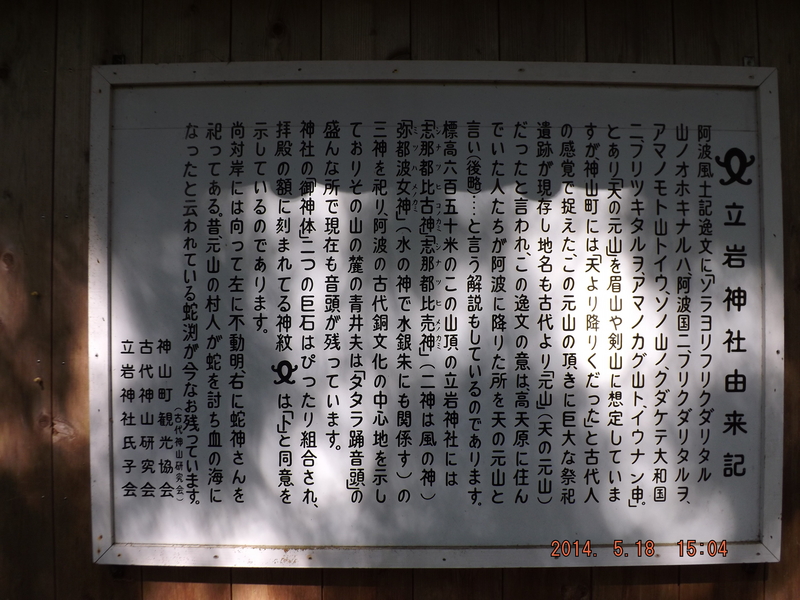 立岩神社由来記
阿波風土記逸文に「ソラヨリフリクダリタル
山ノオホキナルハ、阿波国ニ、フリクダリタルヲ、
アマノモト山トイウ、ソノ山ノクダケテ大和国
ニ、フリツキタルヲ、アマノカグ山ト、イウナン申。」
とあり「天の元山」を眉山や剣山に想定していま
すが、神山町には「天より降りくだった」と古代人
の感覚で捉えた、この元山の頂きに巨大な祭祀
遺跡が現存し地名も古代より「元山」(天の元山)
だったと言われ、この逸文の意は、高天原に住ん
でいた人たちが阿波に降りた所を天の元山と
言い(後略…と言う解説もしているのであります。
標高六百五十米のこの山頂の立岩神社には
「志那都比古神」「志那都比売神」(二神は風の神)
シナツヒコノカミ シナツヒメノカミ
「弥都波女神」(水の神で水銀朱にも関係す)の
ミツハノメノカミ
三神を祀り、阿波の古代銅文化の中心地を示し
ておりその山の麓の青井夫は「タタラ踊音頭」の
盛んな所で現在も音頭が残っています。
神社の「御神体」二つの巨石はぴったり組合され、
拝殿の額に刻まれてる神紋 は「下」と同意を
示しているのであります。
尚対岸には向って左に不動明、右に蛇神さんを
祀ってある。昔、元山の村人が蛇を討ち血の海に
なったと云われている蛇渕が今なお残っています。
(古代神山研究会)
神山町観光協会
古代神山研究会
立岩神社氏子会
2014. 5.18 15:04